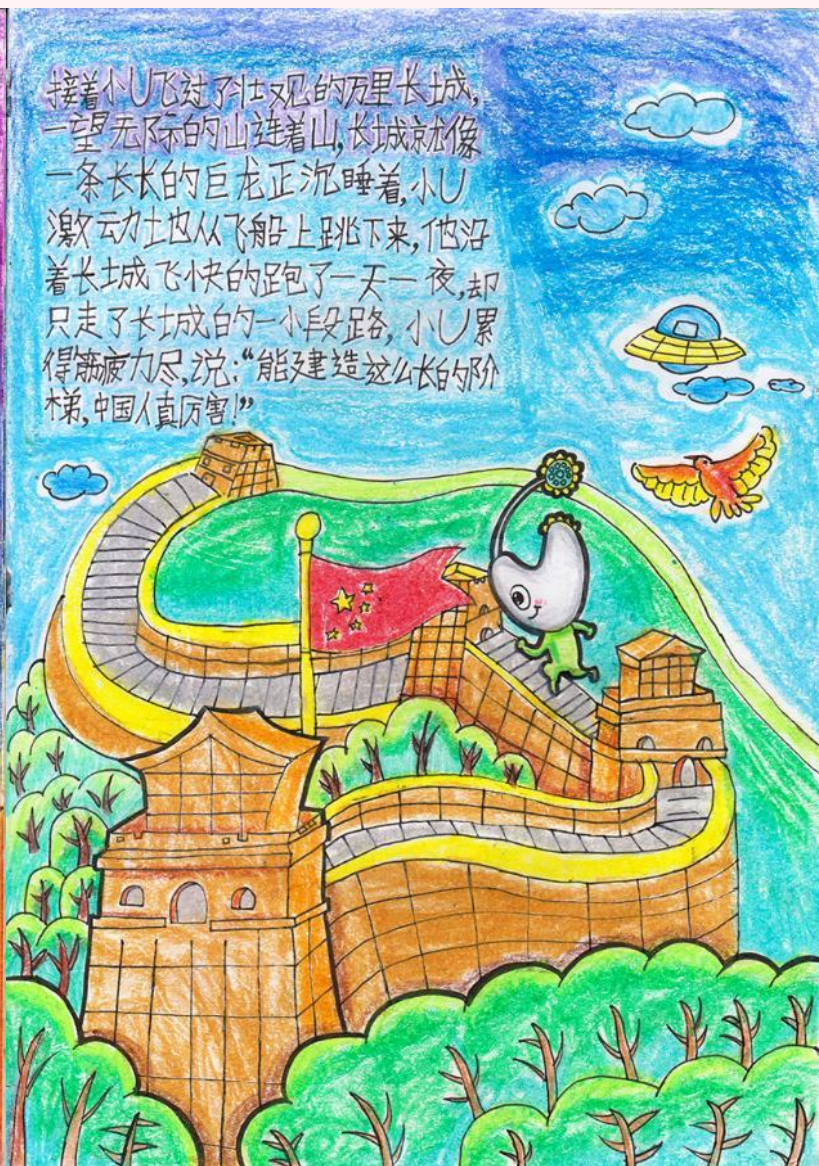 接着小U飞过了壮观的万里长城,
一望无际的山连着山,长城就像
一条长长的巨龙正沉睡着,小U
激动地从飞船上跳下来,他沿
着长城飞快的跑了一天一夜,却
只走了长城的一小段路,小U累
得筋疲力尽,说:“能建造这么长的阶
梯,中国人真厉害!”